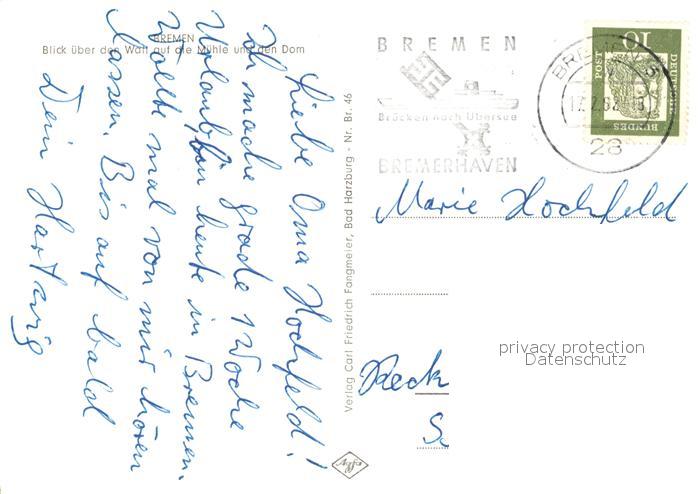 BREMEN
Blick über den Wall auf die Mühle und den Dom
Liebe Oma Hochfeld!
Ich mache grade 1 Woche
Urlaub, bin heute in Bremen.
Wollte mal von mir hören
lassen. Bis auf bald
Dein Hartwig
Verlag Carl Friedrich Fangmeier, Bad Harzburg - Nr. Br. 46
Agfa
BREMEN
Brücken nach Übersee
BREMERHAVEN
BREMEN 5
28
10
DEUTSCHE
BUNDES
POST
Marie Hochfeld
privacy protection
Datenschutz